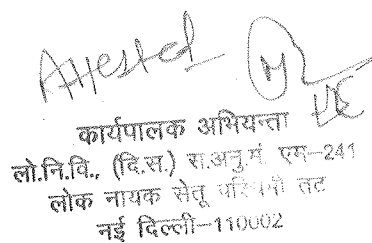 Attested
कार्यपालक अभियन्ता
लो.नि.वि., (दि.स.) स.अनु.मं. एम-241
लोक नायक सेतू पश्चिमी तट
नई दिल्ली-110002